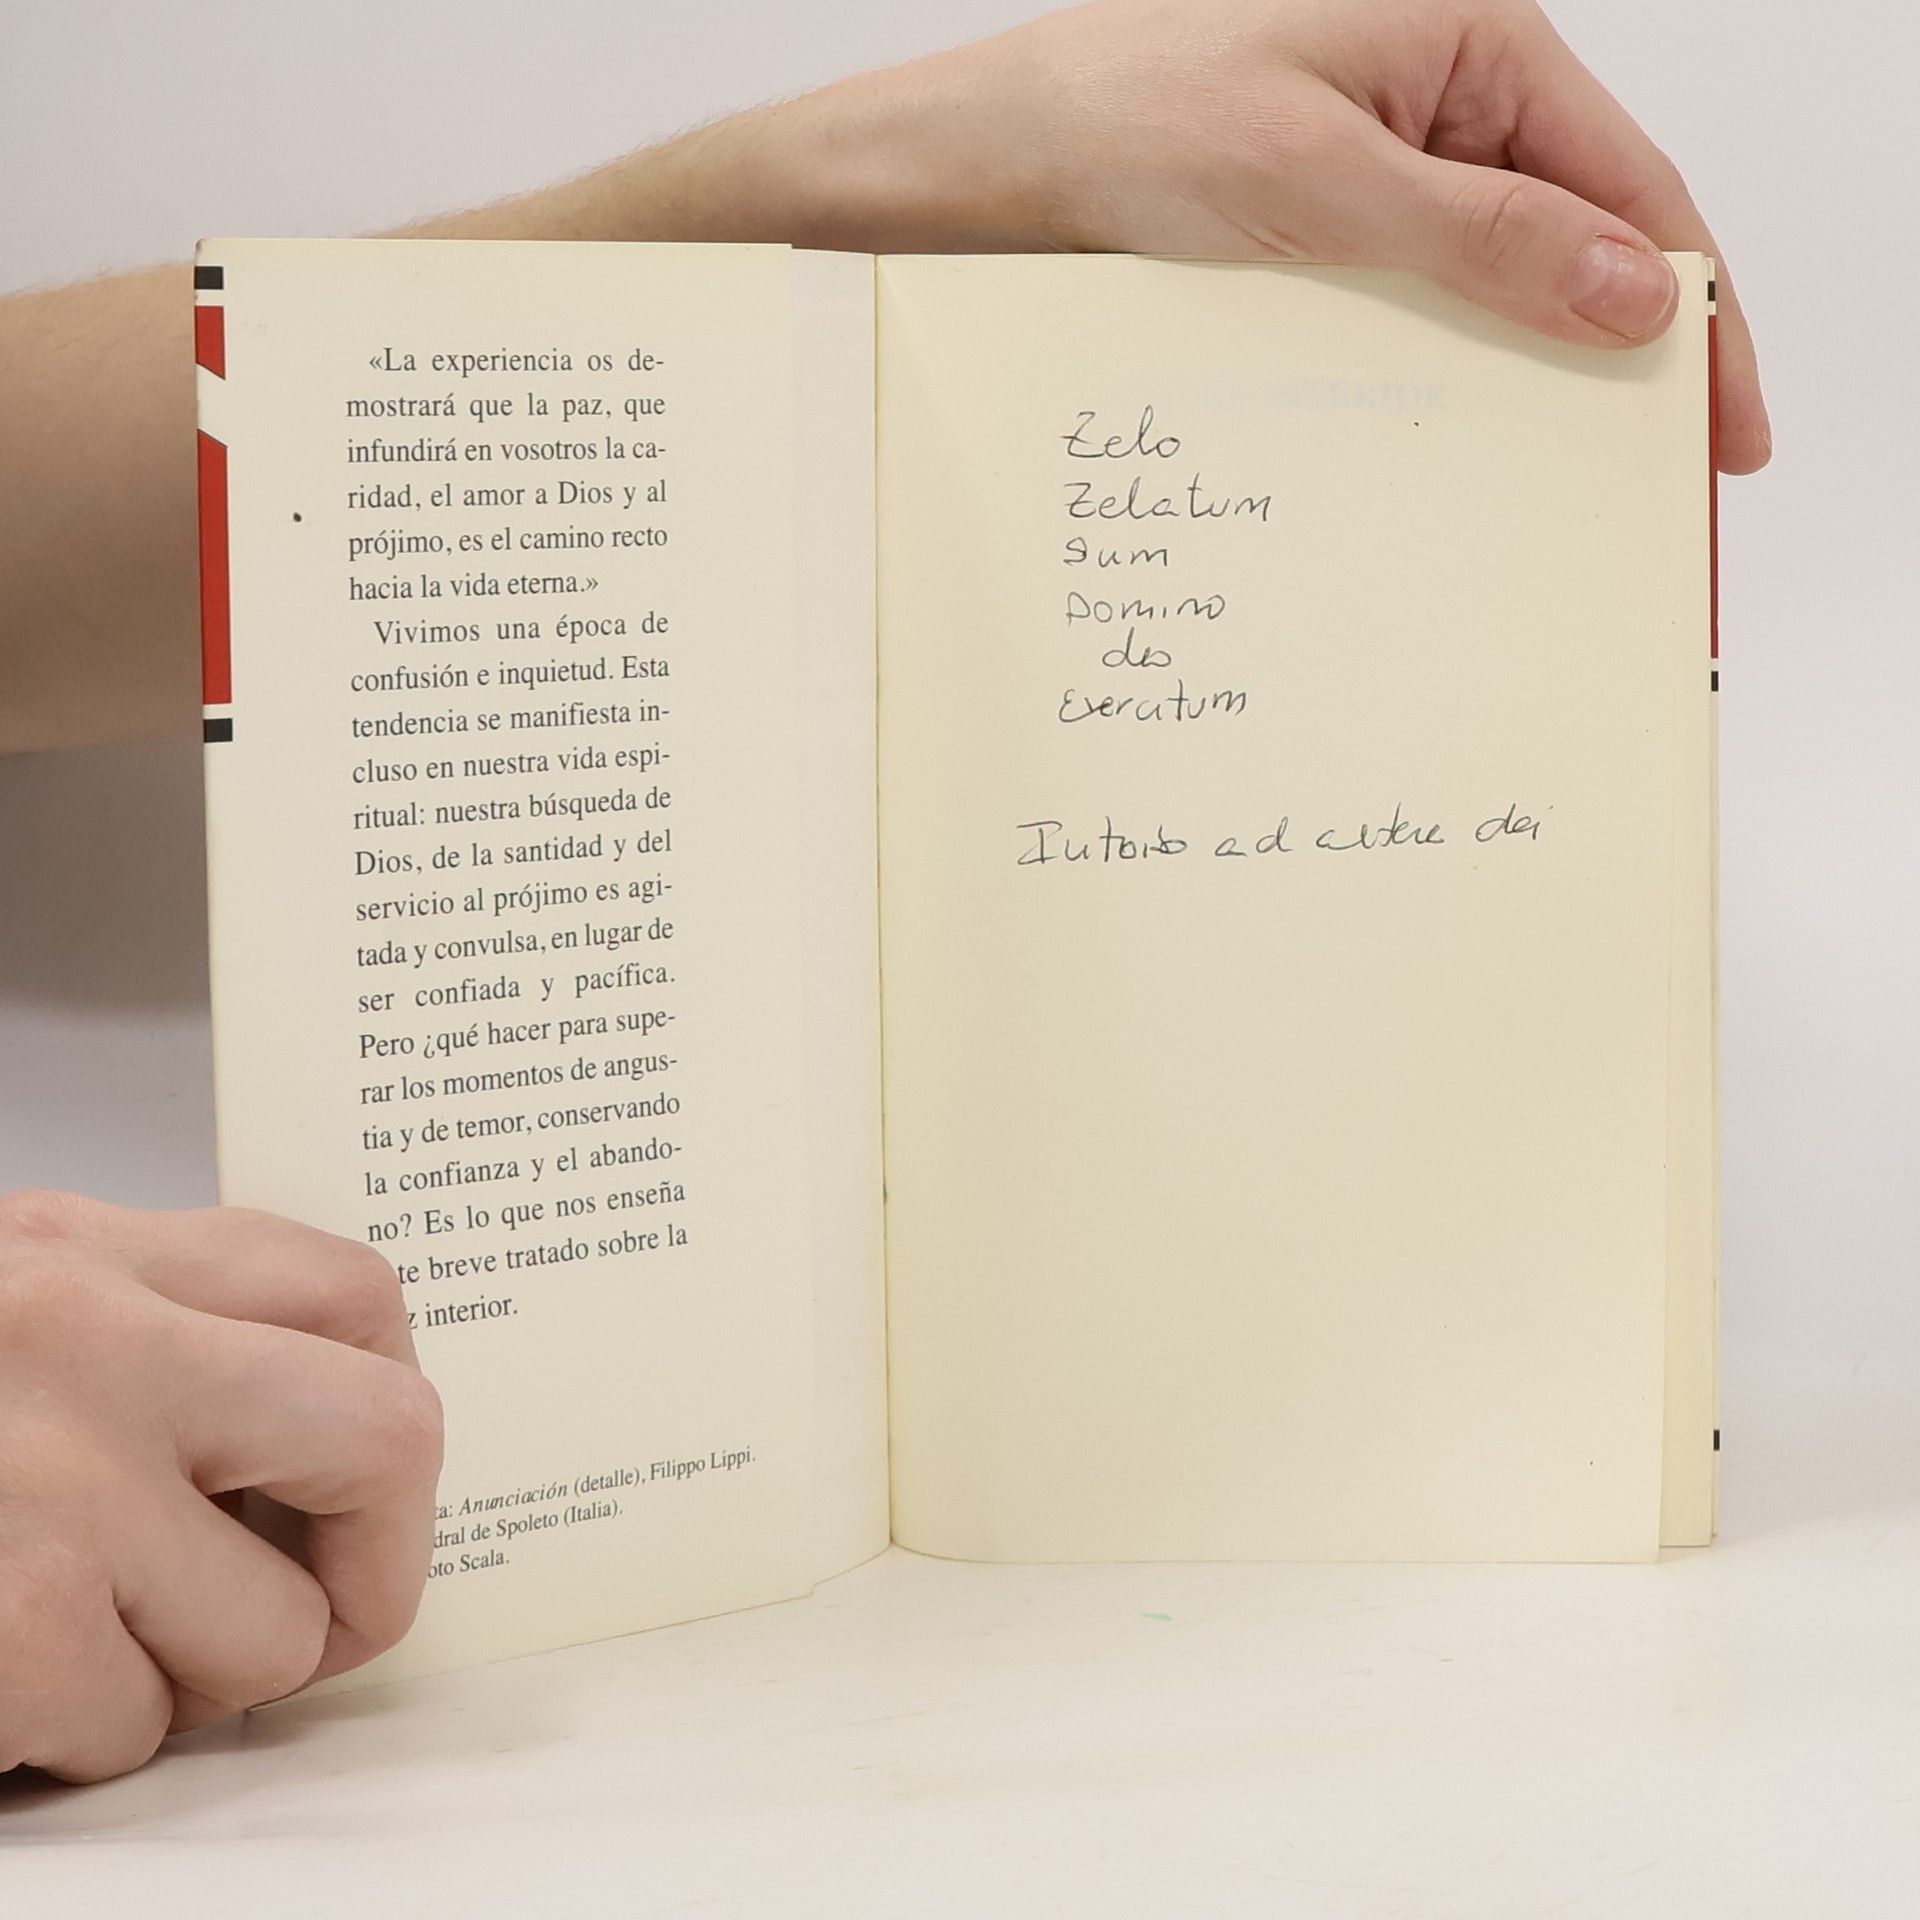 «La experiencia os de-
mostrará que la paz, que
infundirá en vosotros la ca-
ridad, el amor a Dios y al
prójimo, es el camino recto
hacia la vida eterna.»
Vivimos una época de
confusión e inquietud. Esta
tendencia se manifiesta in-
cluso en nuestra vida espi-
ritual: nuestra búsqueda de
Dios, de la santidad y del
servicio al prójimo es agi-
tada y convulsa, en lugar de
ser confiada y pacífica.
Pero ¿qué hacer para supe-
rar los momentos de angus-
tia y de temor, conservando
la confianza y el abando-
no? Es lo que nos enseña
te breve tratado sobre la
z interior.
ta: Anunciación (detalle), Filippo Lippi.
dral de Spoleto (Italia).
oto Scala.
Zelo
Zelatum
Sum
Domino
deo
Exercitum
ad dei